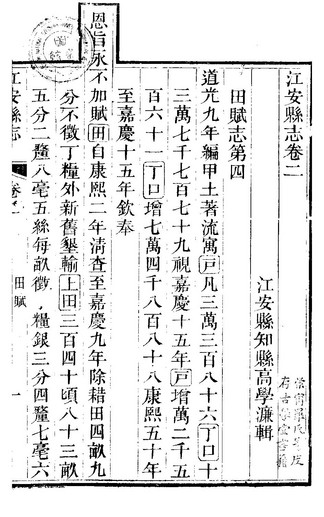 江安縣志卷二
江安縣知縣高學濂輯
田賦志第四
道光九年編甲土著流寓戸凡三萬三百八十六丁口十
三萬七千七百七十九視嘉慶十五年戸增萬二千五
百六十一丁口增七萬四千八百八十八康熙五十年
至嘉慶十五年欽奉
恩旨永不加賦田自康熙二年清查至嘉慶九年除耤田四畝九
分不徵丁糧外新舊墾輸上田三百四十頃八十三畝
五分二釐八毫五絲每畝徵糧銀三分四釐七毫六
江安縣志
卷二
田賦
一